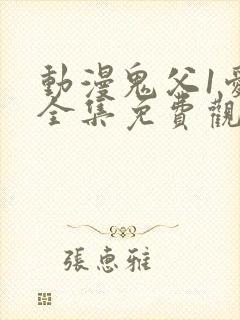 動漫鬼父1愛
全集免費觀
張惠雅